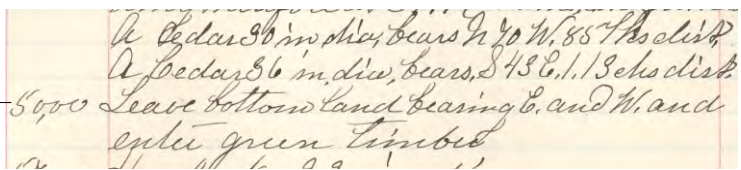 A Cedar 30 in dia, bears N 70 W. 85 lks dist.
A Cedar 36 in. dia, bears, S 43 E. 1.13 chs dist.
50,00 Leave bottom land bearing E. and W. and
enter green timber